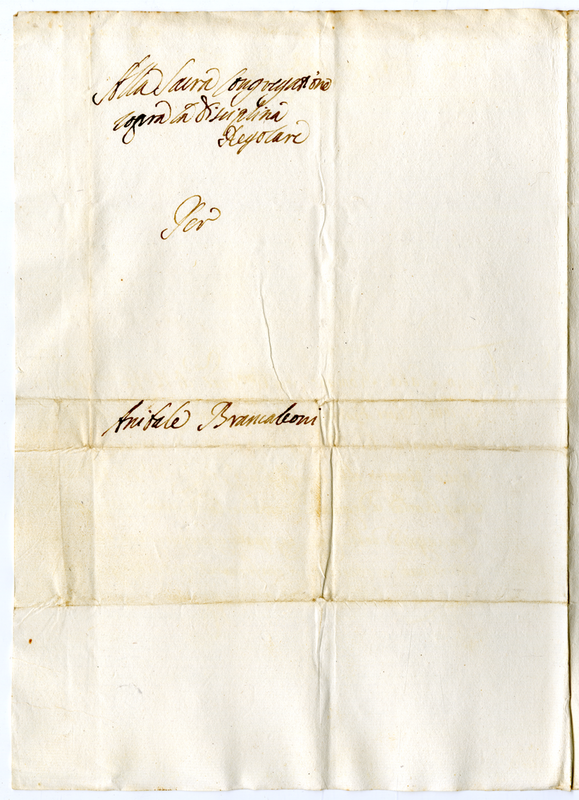 Alla Sacra Congregatione
sopra la Disciplina
Regolare
Per
Anibale Brancaleoni